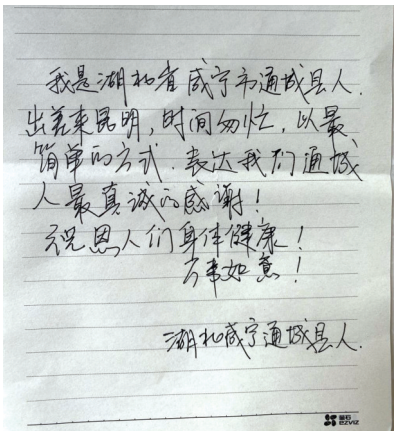 我是湖北省咸宁市通城县人.
出差来昆明,时间匆忙.以最
简单的方式.表达我们通城
人最真诚的感谢!
祝恩人们身体健康!
万事如意!
湖北咸宁通城县人.
萤石
EZVIZ